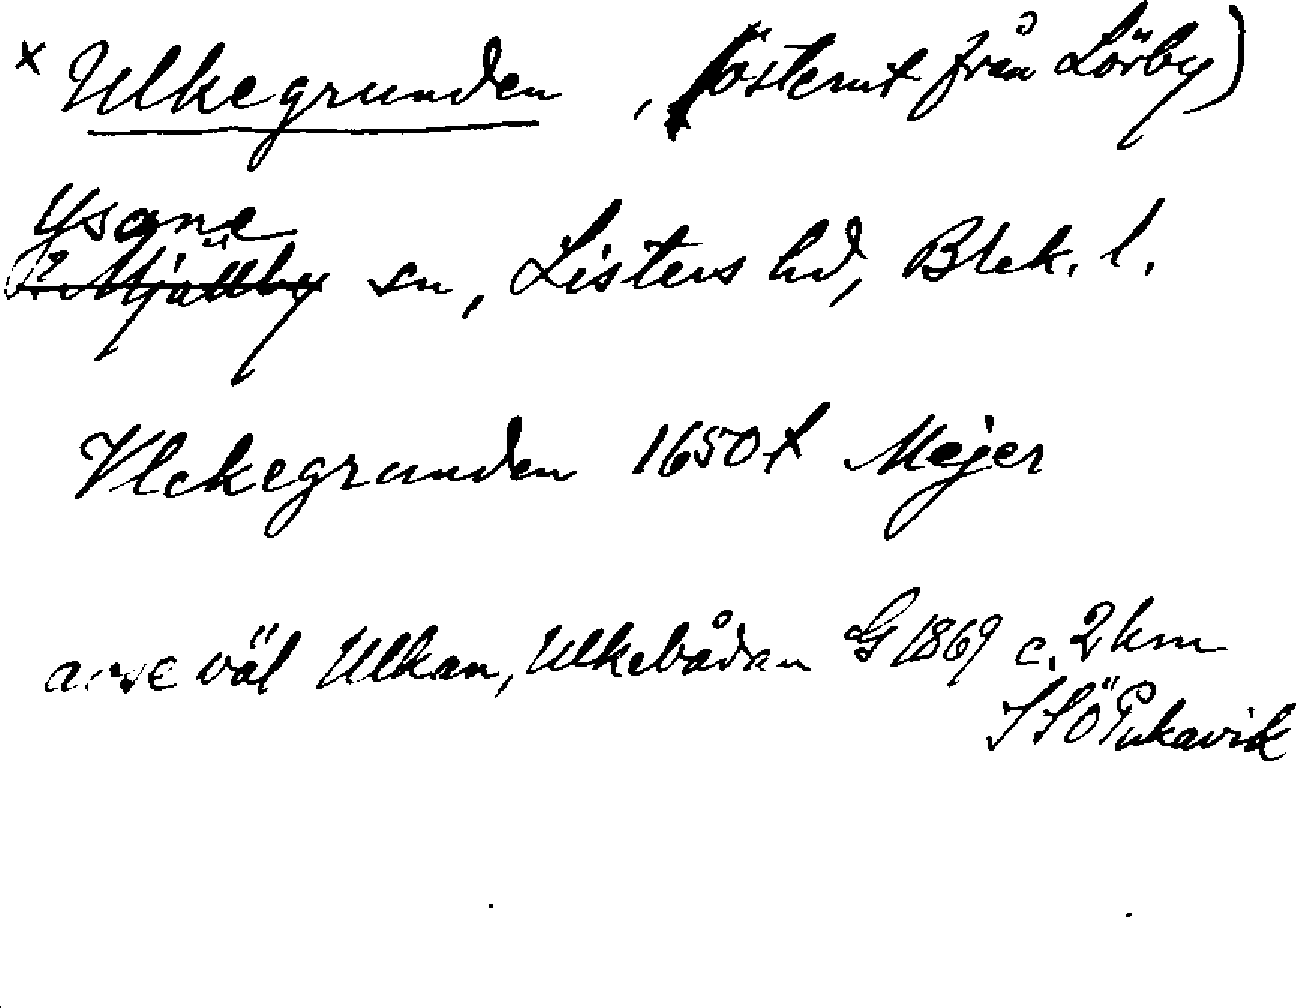 x Ulkegrunden, (österut från Lörby)
Ysane
? Mjällby sn, Listers hd, Blek. l.
Vlckegrunden 1650 t Mejer
avse väl Ulkan, Ulkebådan G 1869 c. 2 km
SSÖ Pukavik